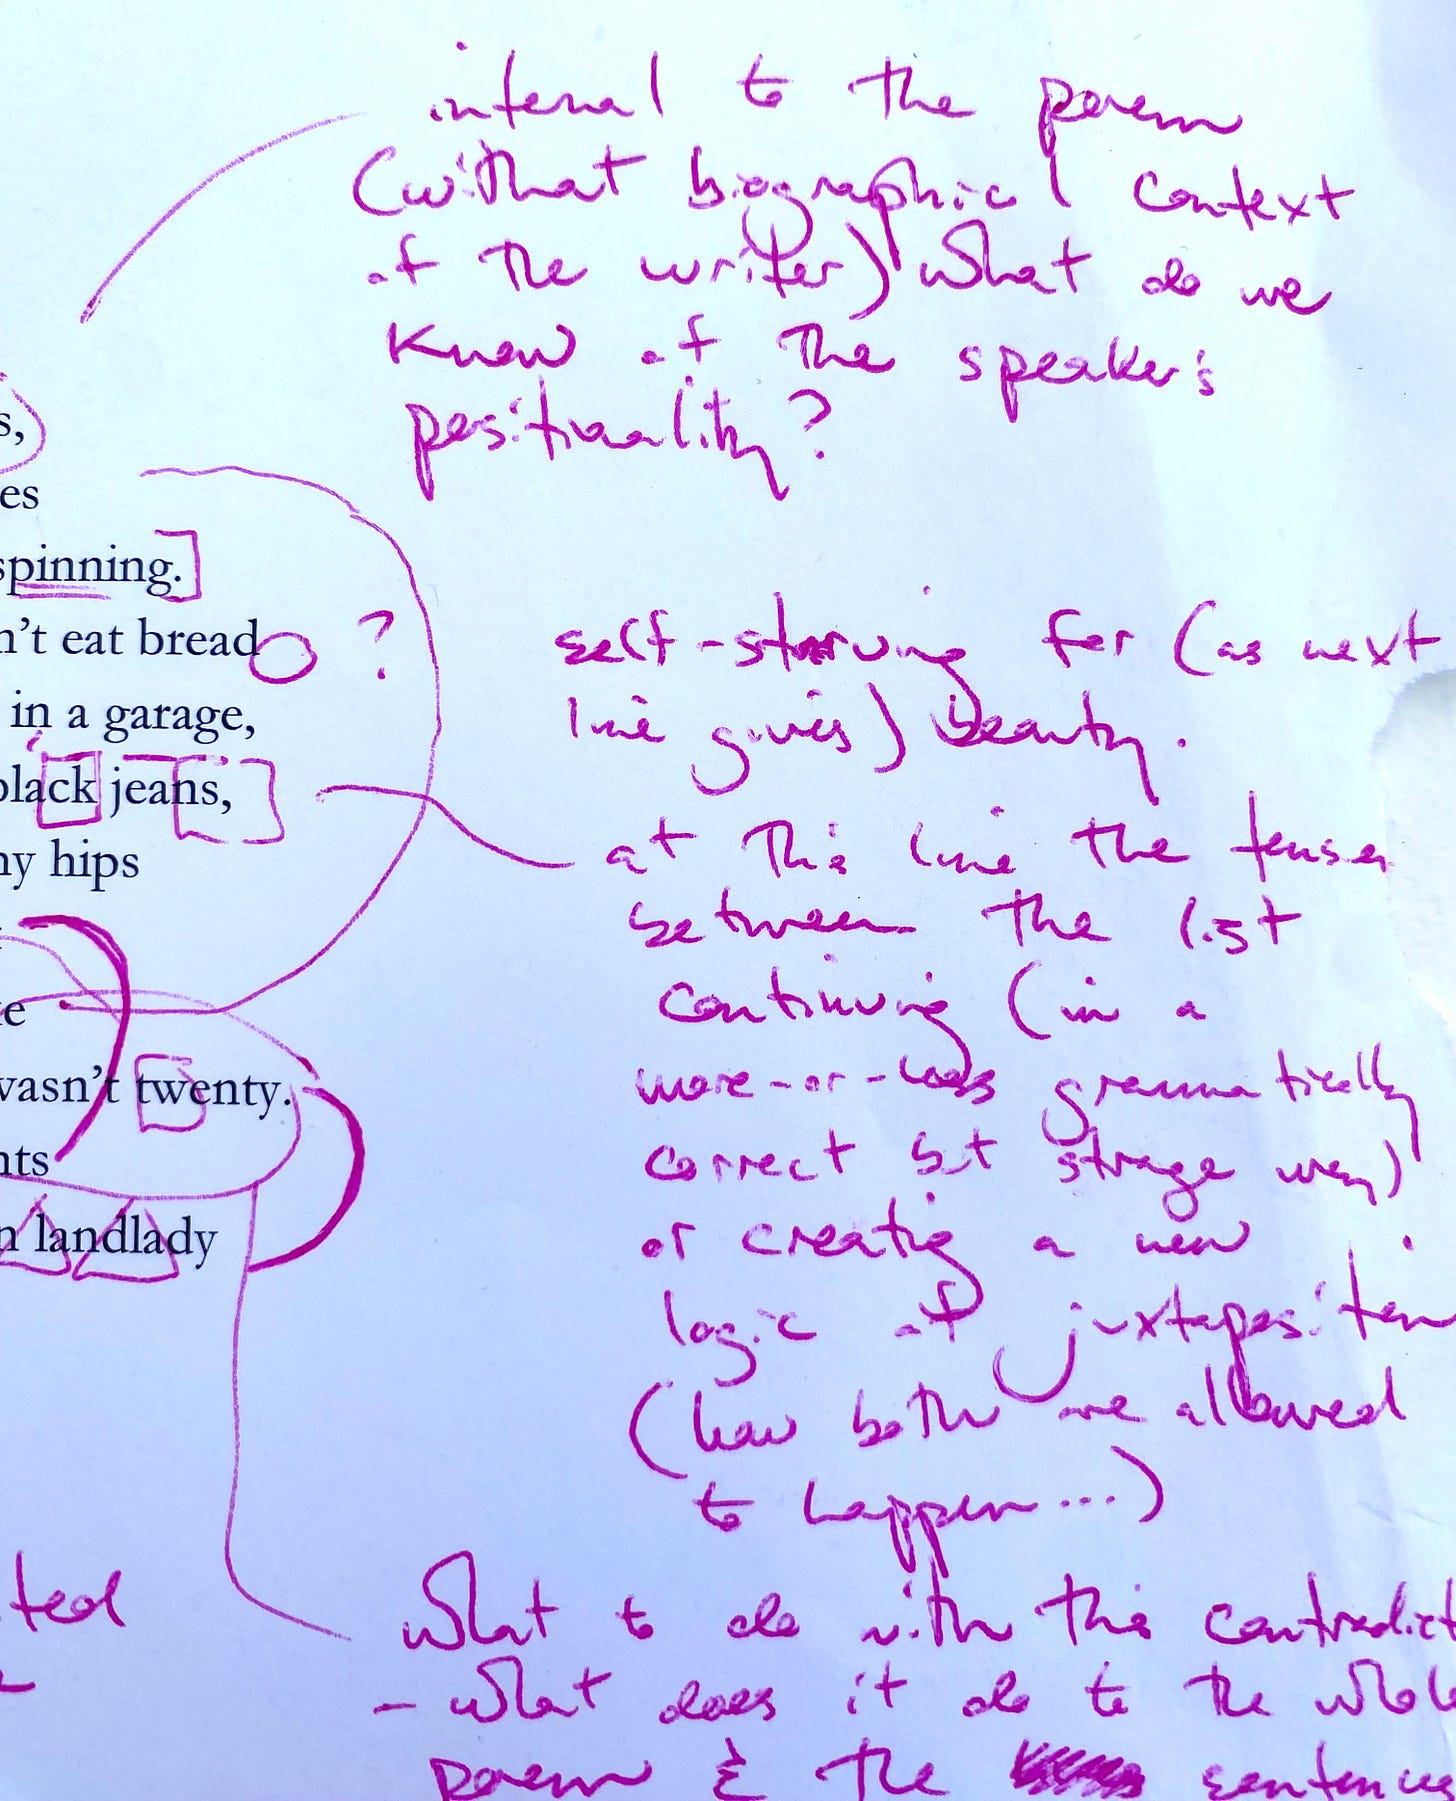 internal to the poem
(without biographical context
of the writer) what do we
know of the speaker's
positionality?
s,
es
spinning.
n't eat bread
?
in a garage,
black jeans,
ny hips
e
wasn't twenty.
nts
n landlady
self-starving for (as next
line gives) beauty.
at this line the tenses
between the list
continuing (in a
more-or-less grammatically
correct but strange way)
or creating a new
logic of juxtaposition
(how both are allowed
to happen...)
ted
what to do with this contradict
- what does it do to the whole
poem & the sentences